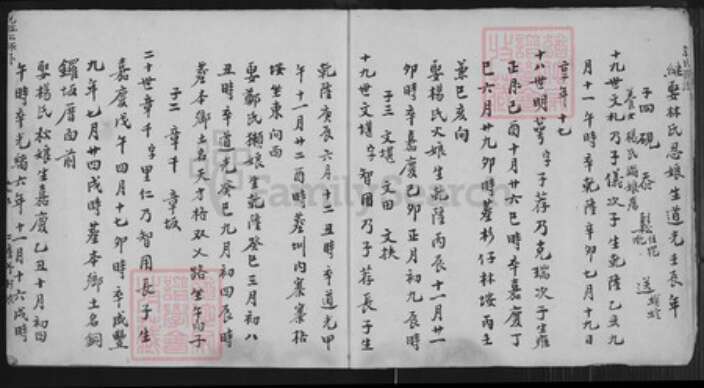 継娶林氏恩娘生道光壬辰年
子四 硯 泰 鬆 送
養女楊氏
十九世文札乃子儀次子生乾隆乙亥九
月十一午時卒乾隆辛卯七月十九日
十八世明萼字子荐乃克瑞次子生雍
正己酉十月廿六巳時卒嘉慶丁
巳六月廿九卯時葬杉仔林坡丙壬
兼巳亥向
娶楊氏火娘生乾隆丙辰十一月廿一
卯時卒嘉慶乙卯正月初九辰時
子三 文堪 文田 文扶
十九世文堪字智用乃子荐長子生
乾隆庚辰六月十二丑時卒道光甲
午十一月廿二酉時葬圳內寨寨
坡坐東向西
娶鄭氏獺娘生乾隆癸巳三月初八
丑時卒道光癸巳九月初四辰時
葬本鄉土名天字格双乂路坐午向子
子二 章千 章坂
二十世章千字里仁乃智用長子生
嘉慶戊午四月十七卯時卒咸豐
九年七月廿四戌時葬本鄉土名銅
鑼坂厝西前
娶楊氏秋娘生嘉慶乙丑十月初四
午時卒光緒六年十一月十六戌時
FamilySearch